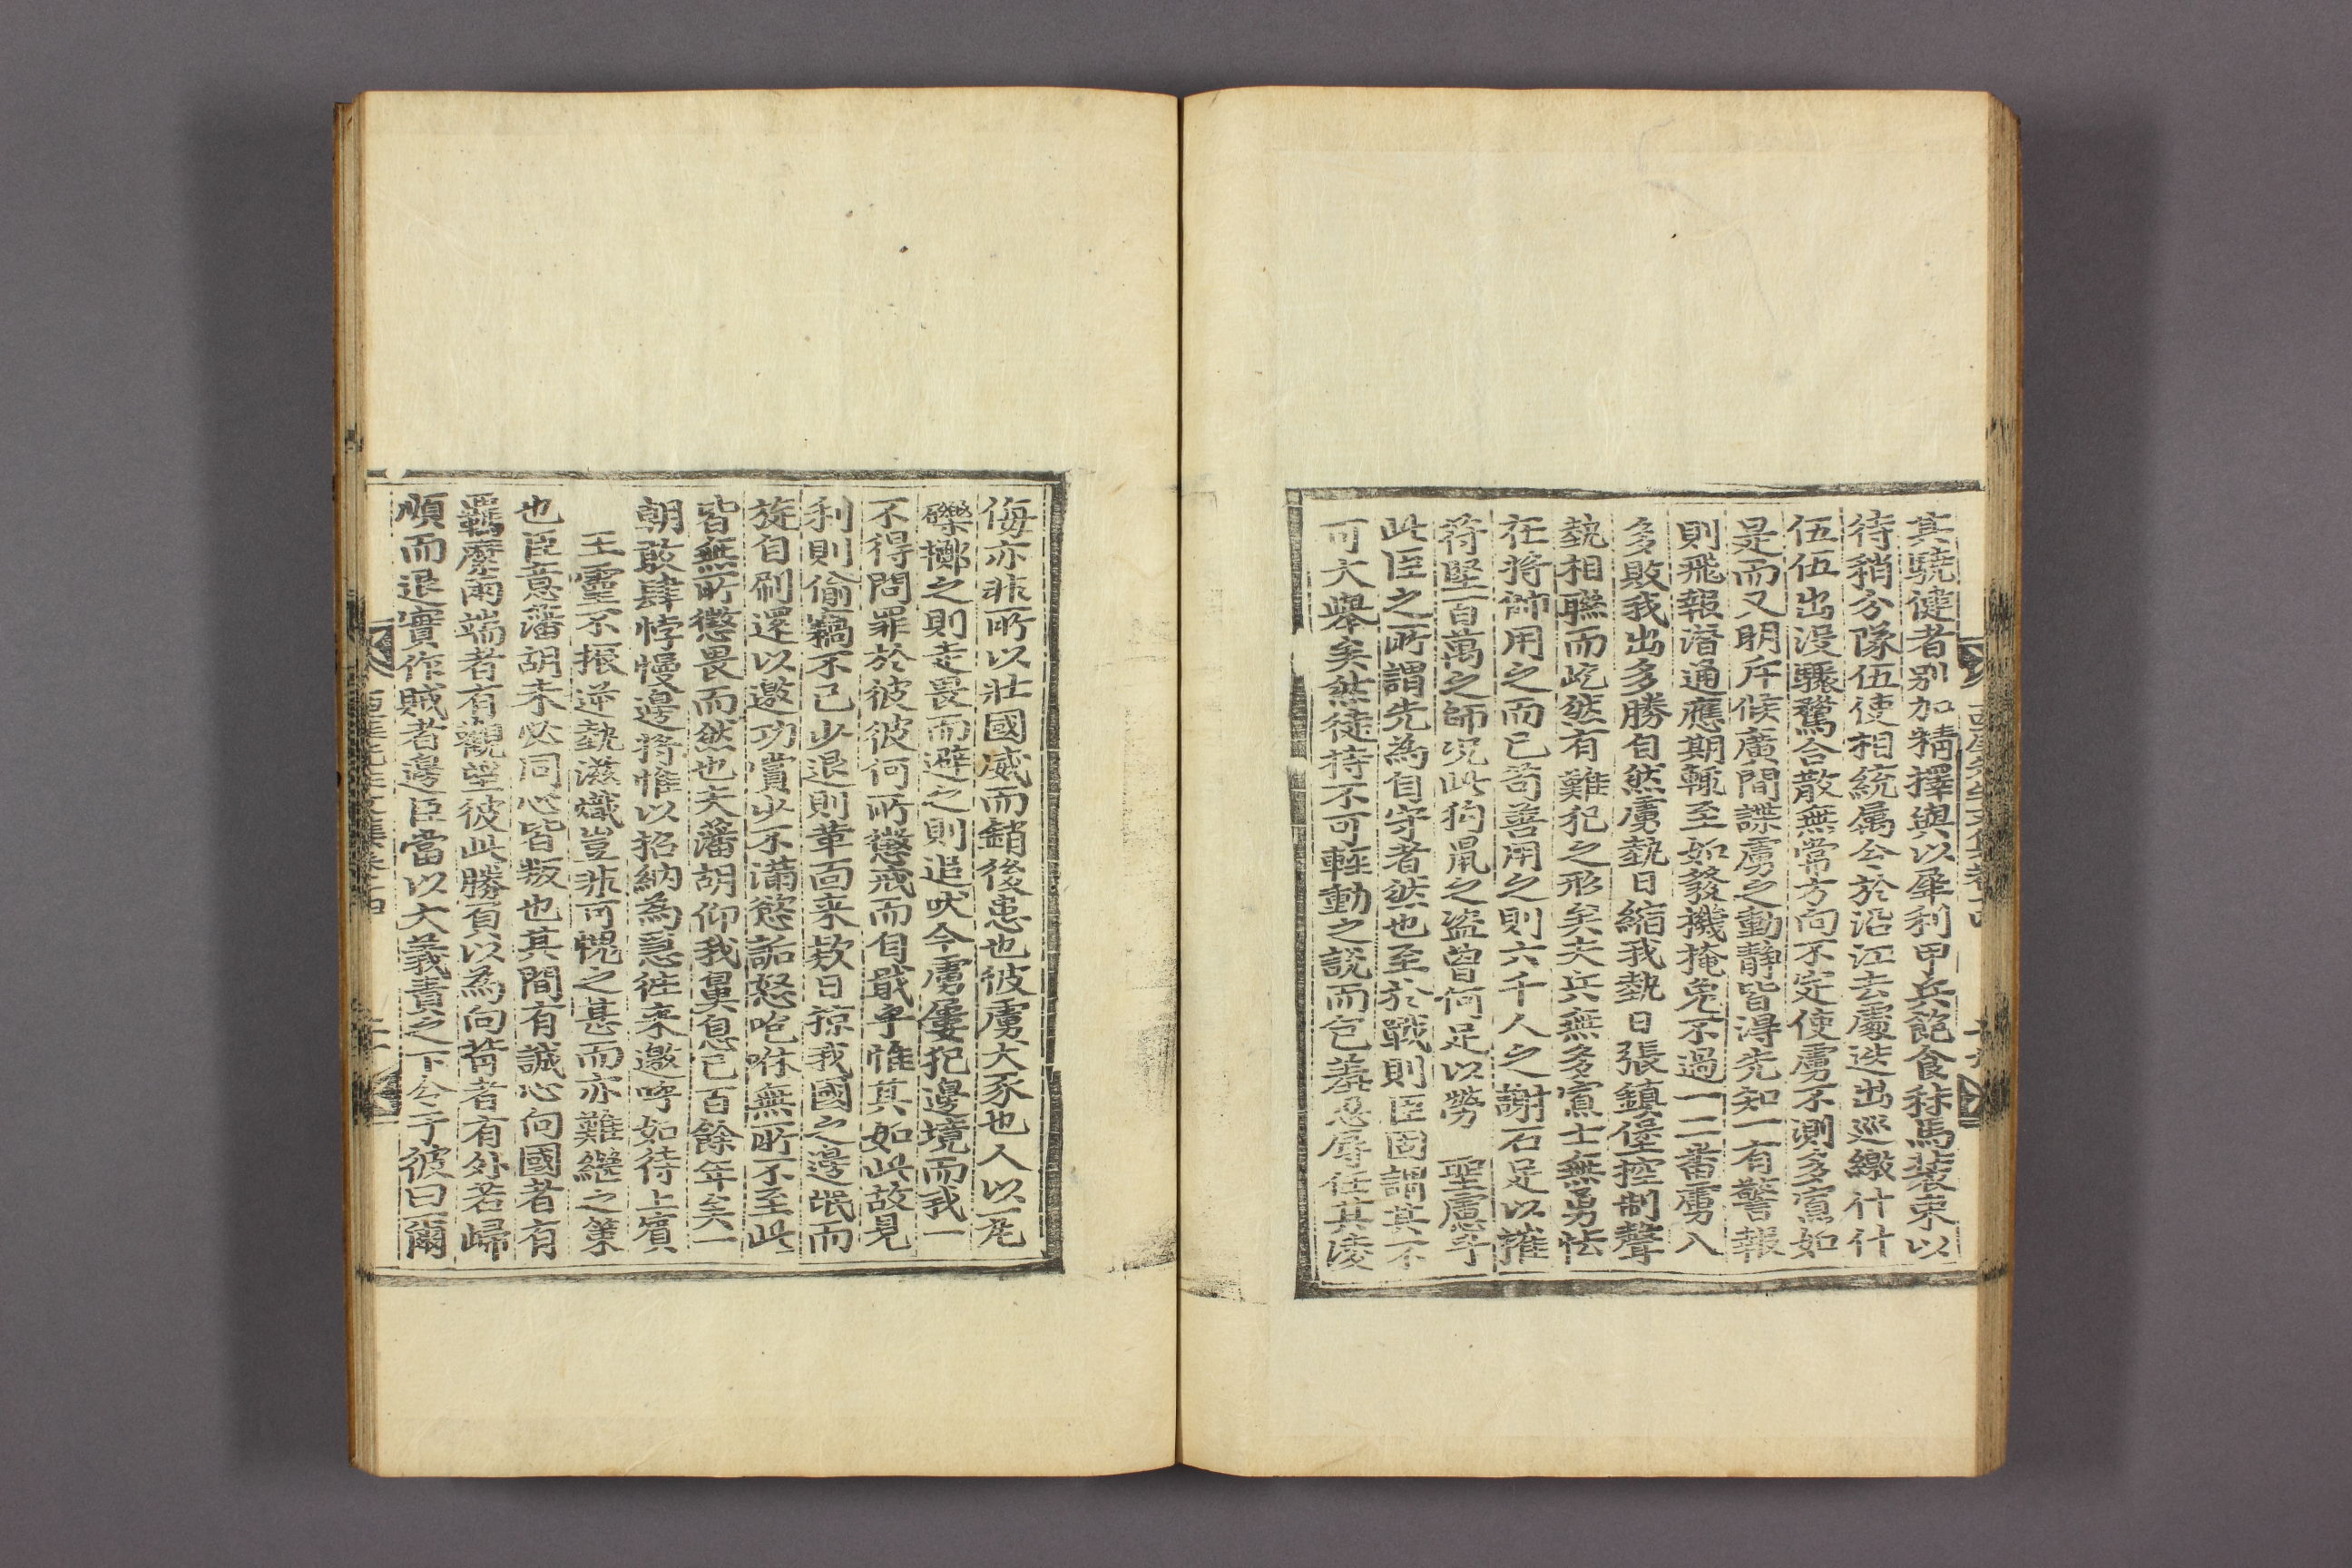 其驍健者别加精擇與以犀利甲兵飽食秣馬裝束以
待稍分隊伍使相統属令於沿江去處迭出巡繳什什
伍伍出没驟騖合散無常方向不定使虜不測多寡如
是而又明斥候廣間諜虜之動靜皆得先知一有警報
則飛報潜通應期輒至如發機掩兎不過一二番虜入
多敗我出多勝自然虜勢日縮我勢日張鎮堡控制聲
勢相聮而屹然有難犯之形矣夫兵無多寡士無勇怯
在將帥用之而已苟善用之則六千人之謝石足以摧
符堅百萬之師况此狗鼠之盗曽何足以勞 聖慮乎
此臣之所謂先為自守者然也至於戰則臣固謂其不
可大舉矣然徒持不可輕動之說而包羞忍辱任其凌
侮亦非所以壮國威而銷後患也彼虜犬豕也人以一尾
礫擲之則走畏而避之則追吠今虜屢犯邊境而我一
不得問罪於彼彼何所懲戒而自戢乎惟其如此故見
利則偷竊不已少退則革面来欵日掠我國之邊氓而
旋自刷還以邀功賞少不滿慾詬怒咆咻無所不至此
皆無所懲畏而然也夫藩胡仰我鼻息已百餘年矣一
朝敢肆悖慢邊將惟以招納為急徃来邀呼如待上賓
王靈不振逆勢滋熾豈非可愧之甚而亦難繼之策
也臣意藩胡未必同心皆叛也其間有誠心向國者有
羈縻兩端者有觀望彼此勝負以為向背者有外若歸
順而退實作賊者邊臣當以大義責之下令于彼曰爾